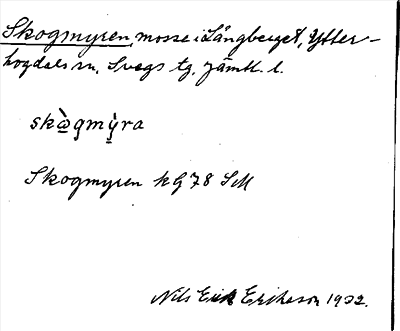 Skogmyren, mosse i Långberget, Ytter-
hogdals sn, Svegs tg, Jämtl. l.
skògmỳra
Skogmyren kG 78 SM
Nils Erik Erikson 1932.